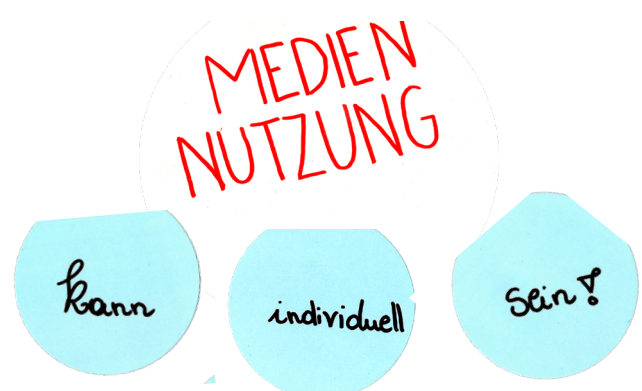 MEDIEN
NUTZUNG
kann
individuell
sein!